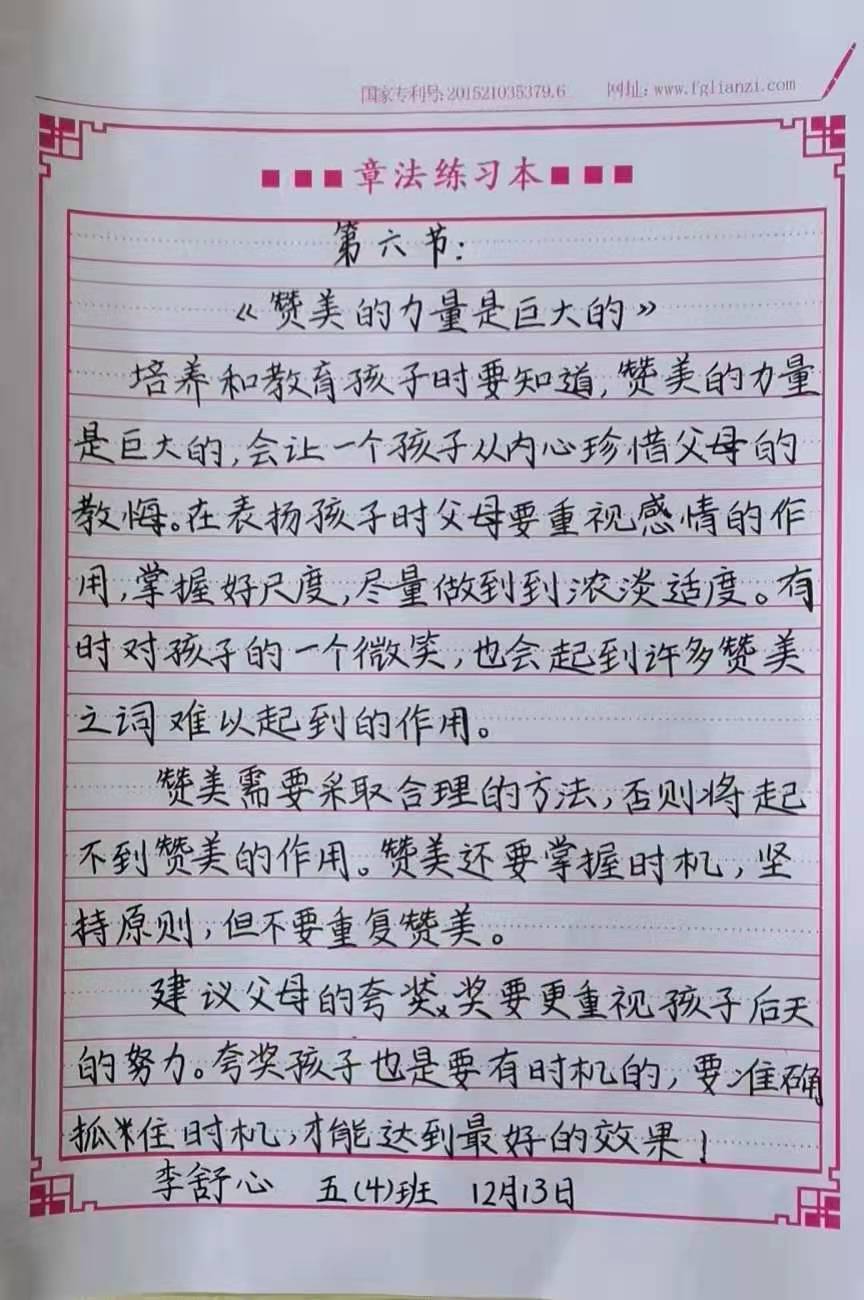 国家专利号:201521035379.6 网址:www.fglianzi.com
章法练习本
第六节:
《赞美的力量是巨大的》
培养和教育孩子时要知道,赞美的力量
是巨大的,会让一个孩子从内心珍惜父母的
教悔。在表扬孩子时父母要重视感情的作
用,掌握好尺度,尽量做到到浓淡适度。有
时对孩子的一个微笑,也会起到许多赞美
之词难以起到的作用。
赞美需要采取合理的方法,否则将起
不到赞美的作用。赞美还要掌握时机,坚
持原则,但不要重复赞美。
建议父母的夸奖要更重视孩子后天
的努力。夸奖孩子也是要有时机的,要准确
抓住时机,才能达到最好的效果!
李舒心 五(4)班 12月13日